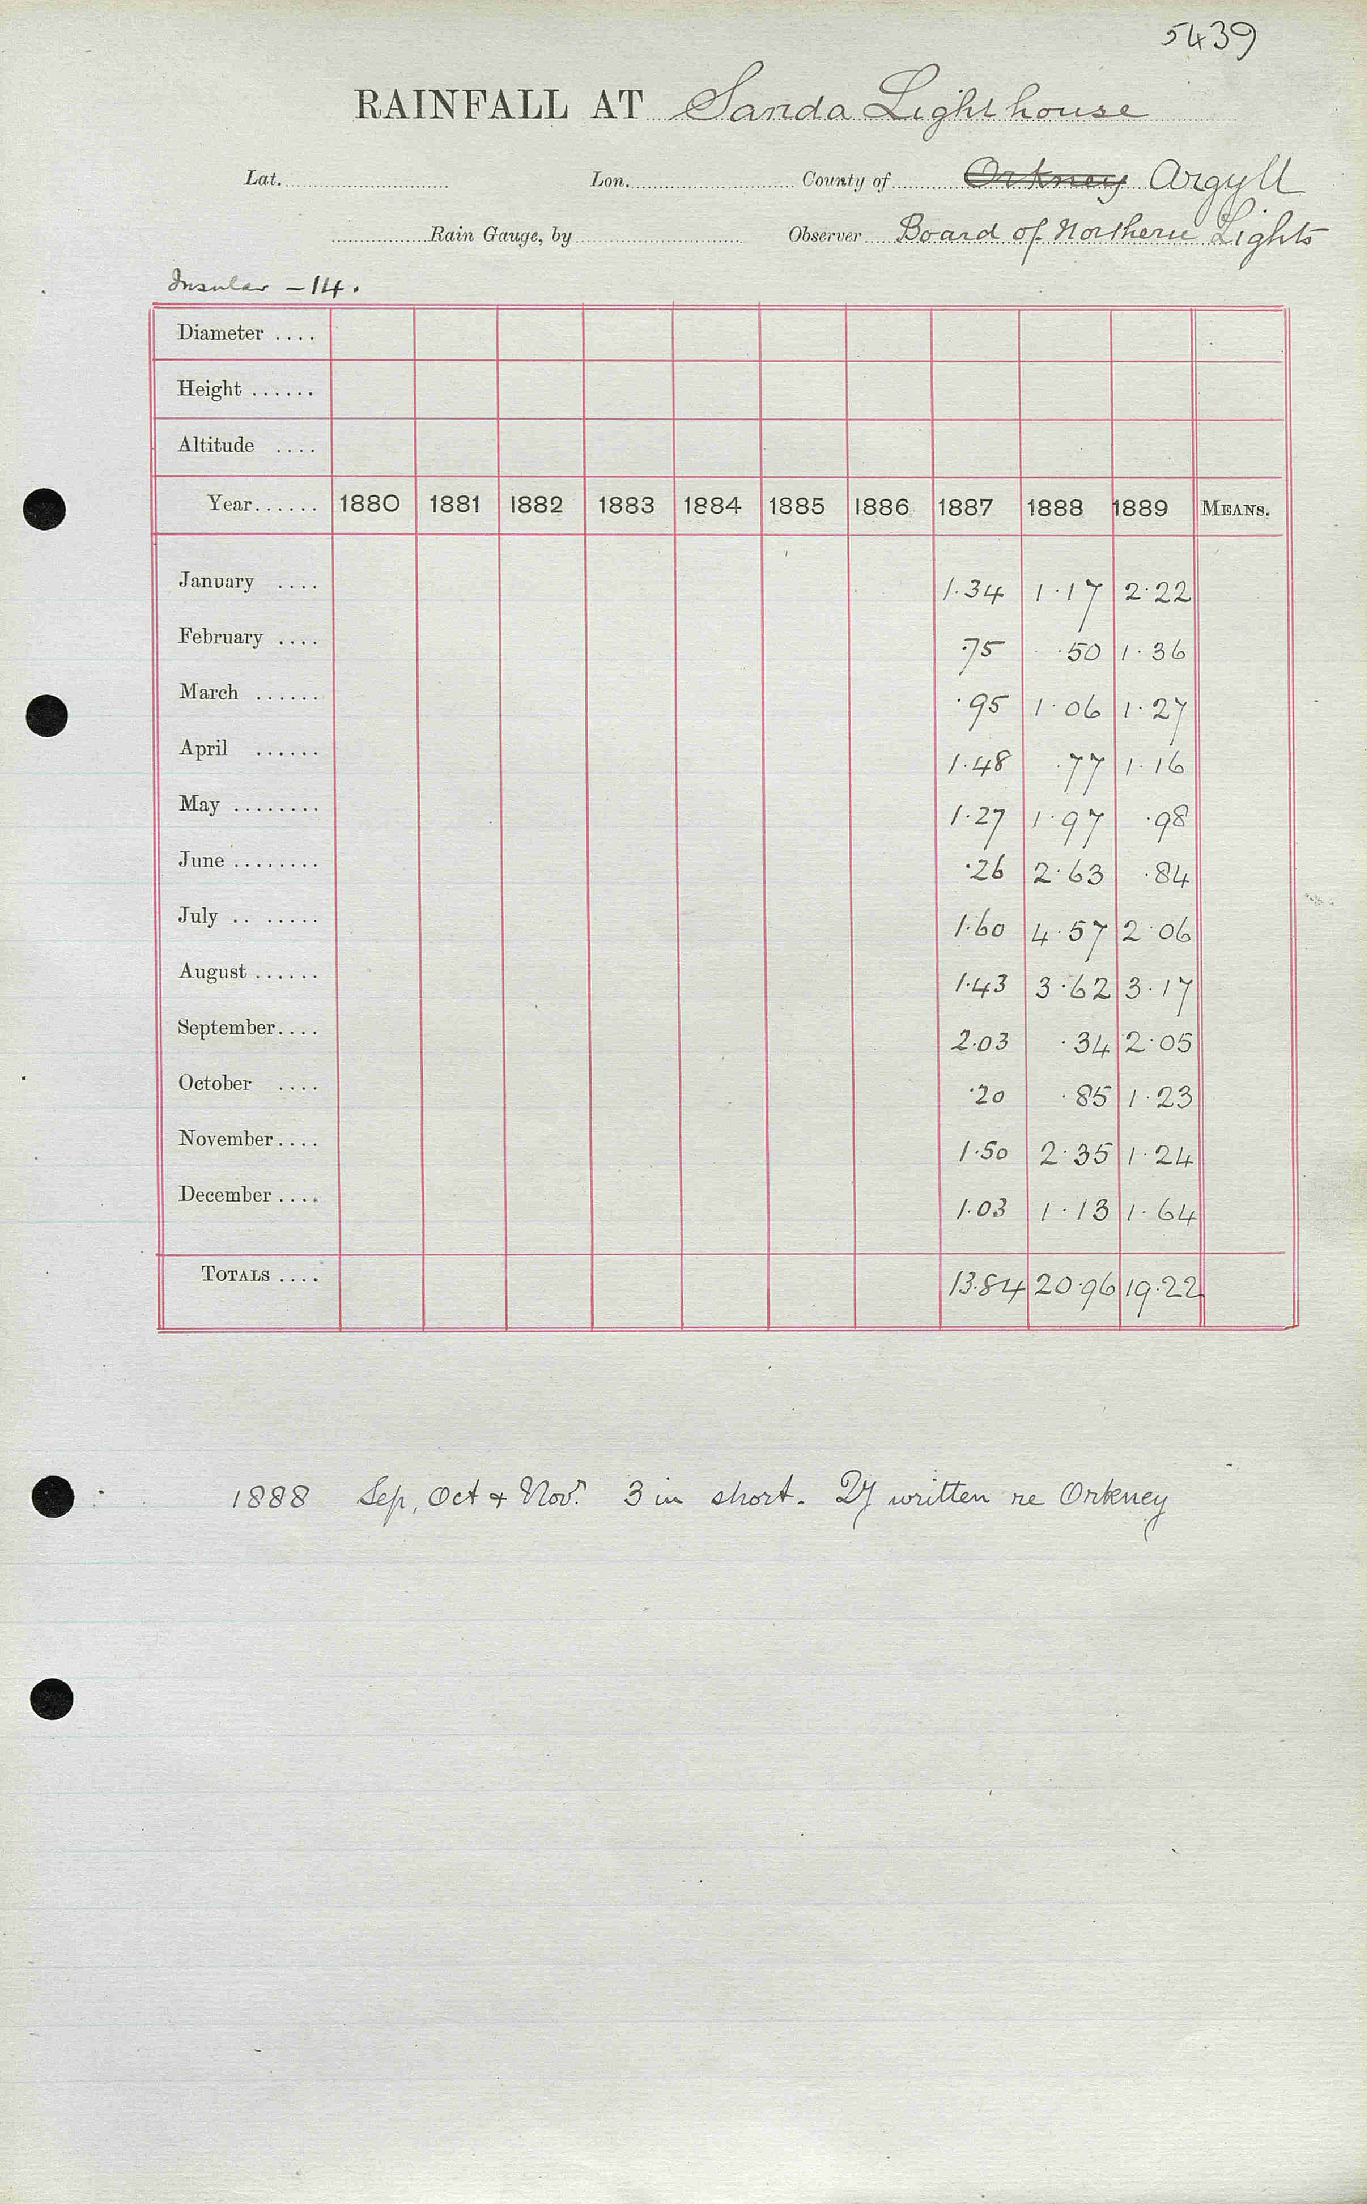 5439
RAINFALL AT Sanda Lighthouse
Lat. Lon. County of Orkney Argyll
Rain Gauge, by Observer Board of Northern Lights
Insular - 14.
Diameter ....
Height ......
Altitude ....
Year...... 1880 1881 1882 1883 1884 1885 1886 1887 1888 1889 MEANS.
January .... 1.34 1.17 2.22
February .... .75 .50 1.36
March ...... .95 1.06 1.27
April ...... 1.48 .77 1.16
May ........ 1.27 1.97 .98
June ........ .26 2.63 .84
July .. ...... 1.60 4.57 2.06
August ...... 1.43 3.62 3.17
September.... 2.03 .34 2.05
October .... .20 .85 1.23
November.... 1.50 2.35 1.24
December .... 1.03 1.13 1.64
TOTALS .... 13.84 20.96 19.22
1888 Sep, Oct + Nov. 3 in short. written re Orkney